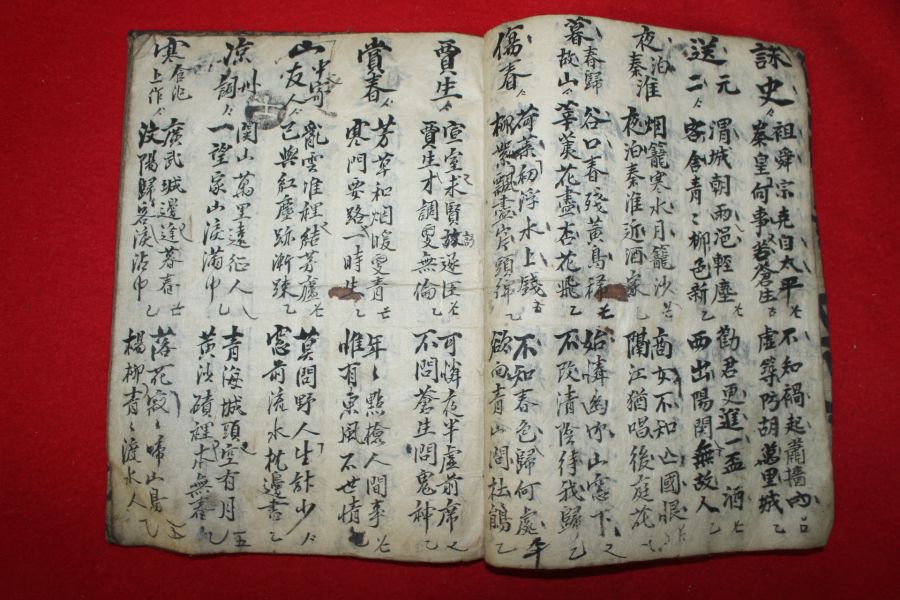 詠史
祖舜宗堯自太平 不知禍起蕭墻內
秦皇何事苦蒼生 虛築防胡萬里城
送元二
渭城朝雨浥輕塵 勸君更進一盃酒
客舍青〻柳色新 西出陽関無故人
夜泊秦淮
烟籠寒水月籠沙 商女不知亡國恨
夜泊秦淮近酒家 隔江猶唱後庭花
暮春歸故山
谷口春殘黃鳥稀 始憐幽竹山窓下
辛荑花盡杏花飛 不改清陰待我歸
傷春
荷葉初浮水上錢 不知春色歸何處
柳絮飄盡岸頭綿 欲向青山問杜鵑
賈生
宣室求賢放逐臣 可憐夜半虛前席
賈生才調更無倫 不問蒼生問鬼神
賞春
芳草和烟暖更青 年〻點檢人間事
寒門要路一時生 惟有東風不世情
山中寄友人
亂雲堆裡結茅廬 莫問野人生計少
已與紅塵跡漸疎 窓前流水枕邊書
凉州詞
関山萬里遠征人 青海城頭空有月
一望家山淚滿巾 黃沙磧裡本無春
寒食汜上作
廣武城邊逢暮春 落花寂〻啼山鳥
汶陽歸客淚沾巾 楊柳青〻渡水人